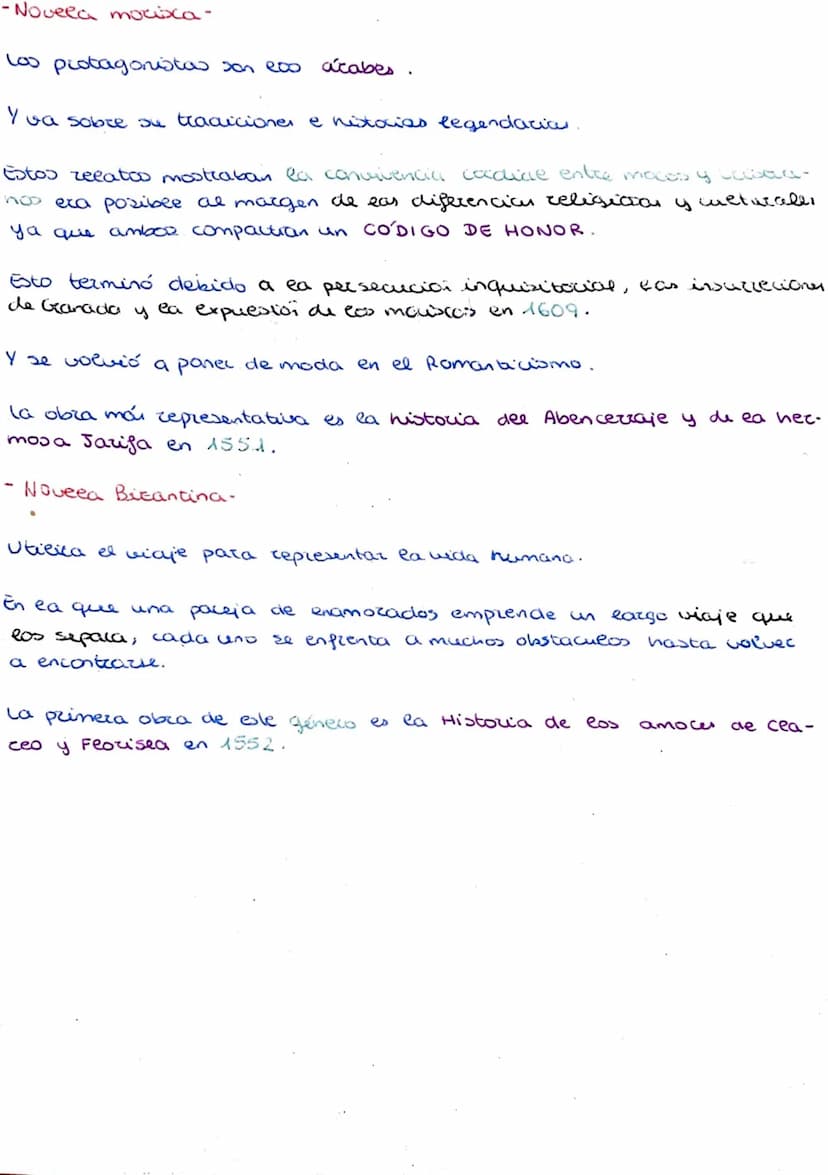 - Novela morisca -
Los protagonistas son los árabes.
Y va sobre su tradiciones e historias legendarias.
Estos relatos mostraban la convivencia cordial entre moros y cristia-
nos era posible al margen de las diferencias religiosas y culturales
ya que ambos compartían un CÓDIGO DE HONOR.
Esto terminó debido a la persecución inquisitorial, las insurrecciones
de Granada y la expulsión de los moriscos en 1609.
Y se volvió a poner de moda en el Romanticismo.
La obra más representativa es la historia del Abencerraje y de la her-
mosa Jarifa en 1551.
- Novela Bizantina -
Utiliza el viaje para representar la vida humana.
En la que una pareja de enamorados emprende un largo viaje que
los separa, cada uno se enfrenta a muchos obstaculos hasta volver
a encontrarse.
La primera obra de este género es la Historia de los amores de Cla-
reo y Florisea en 1552.